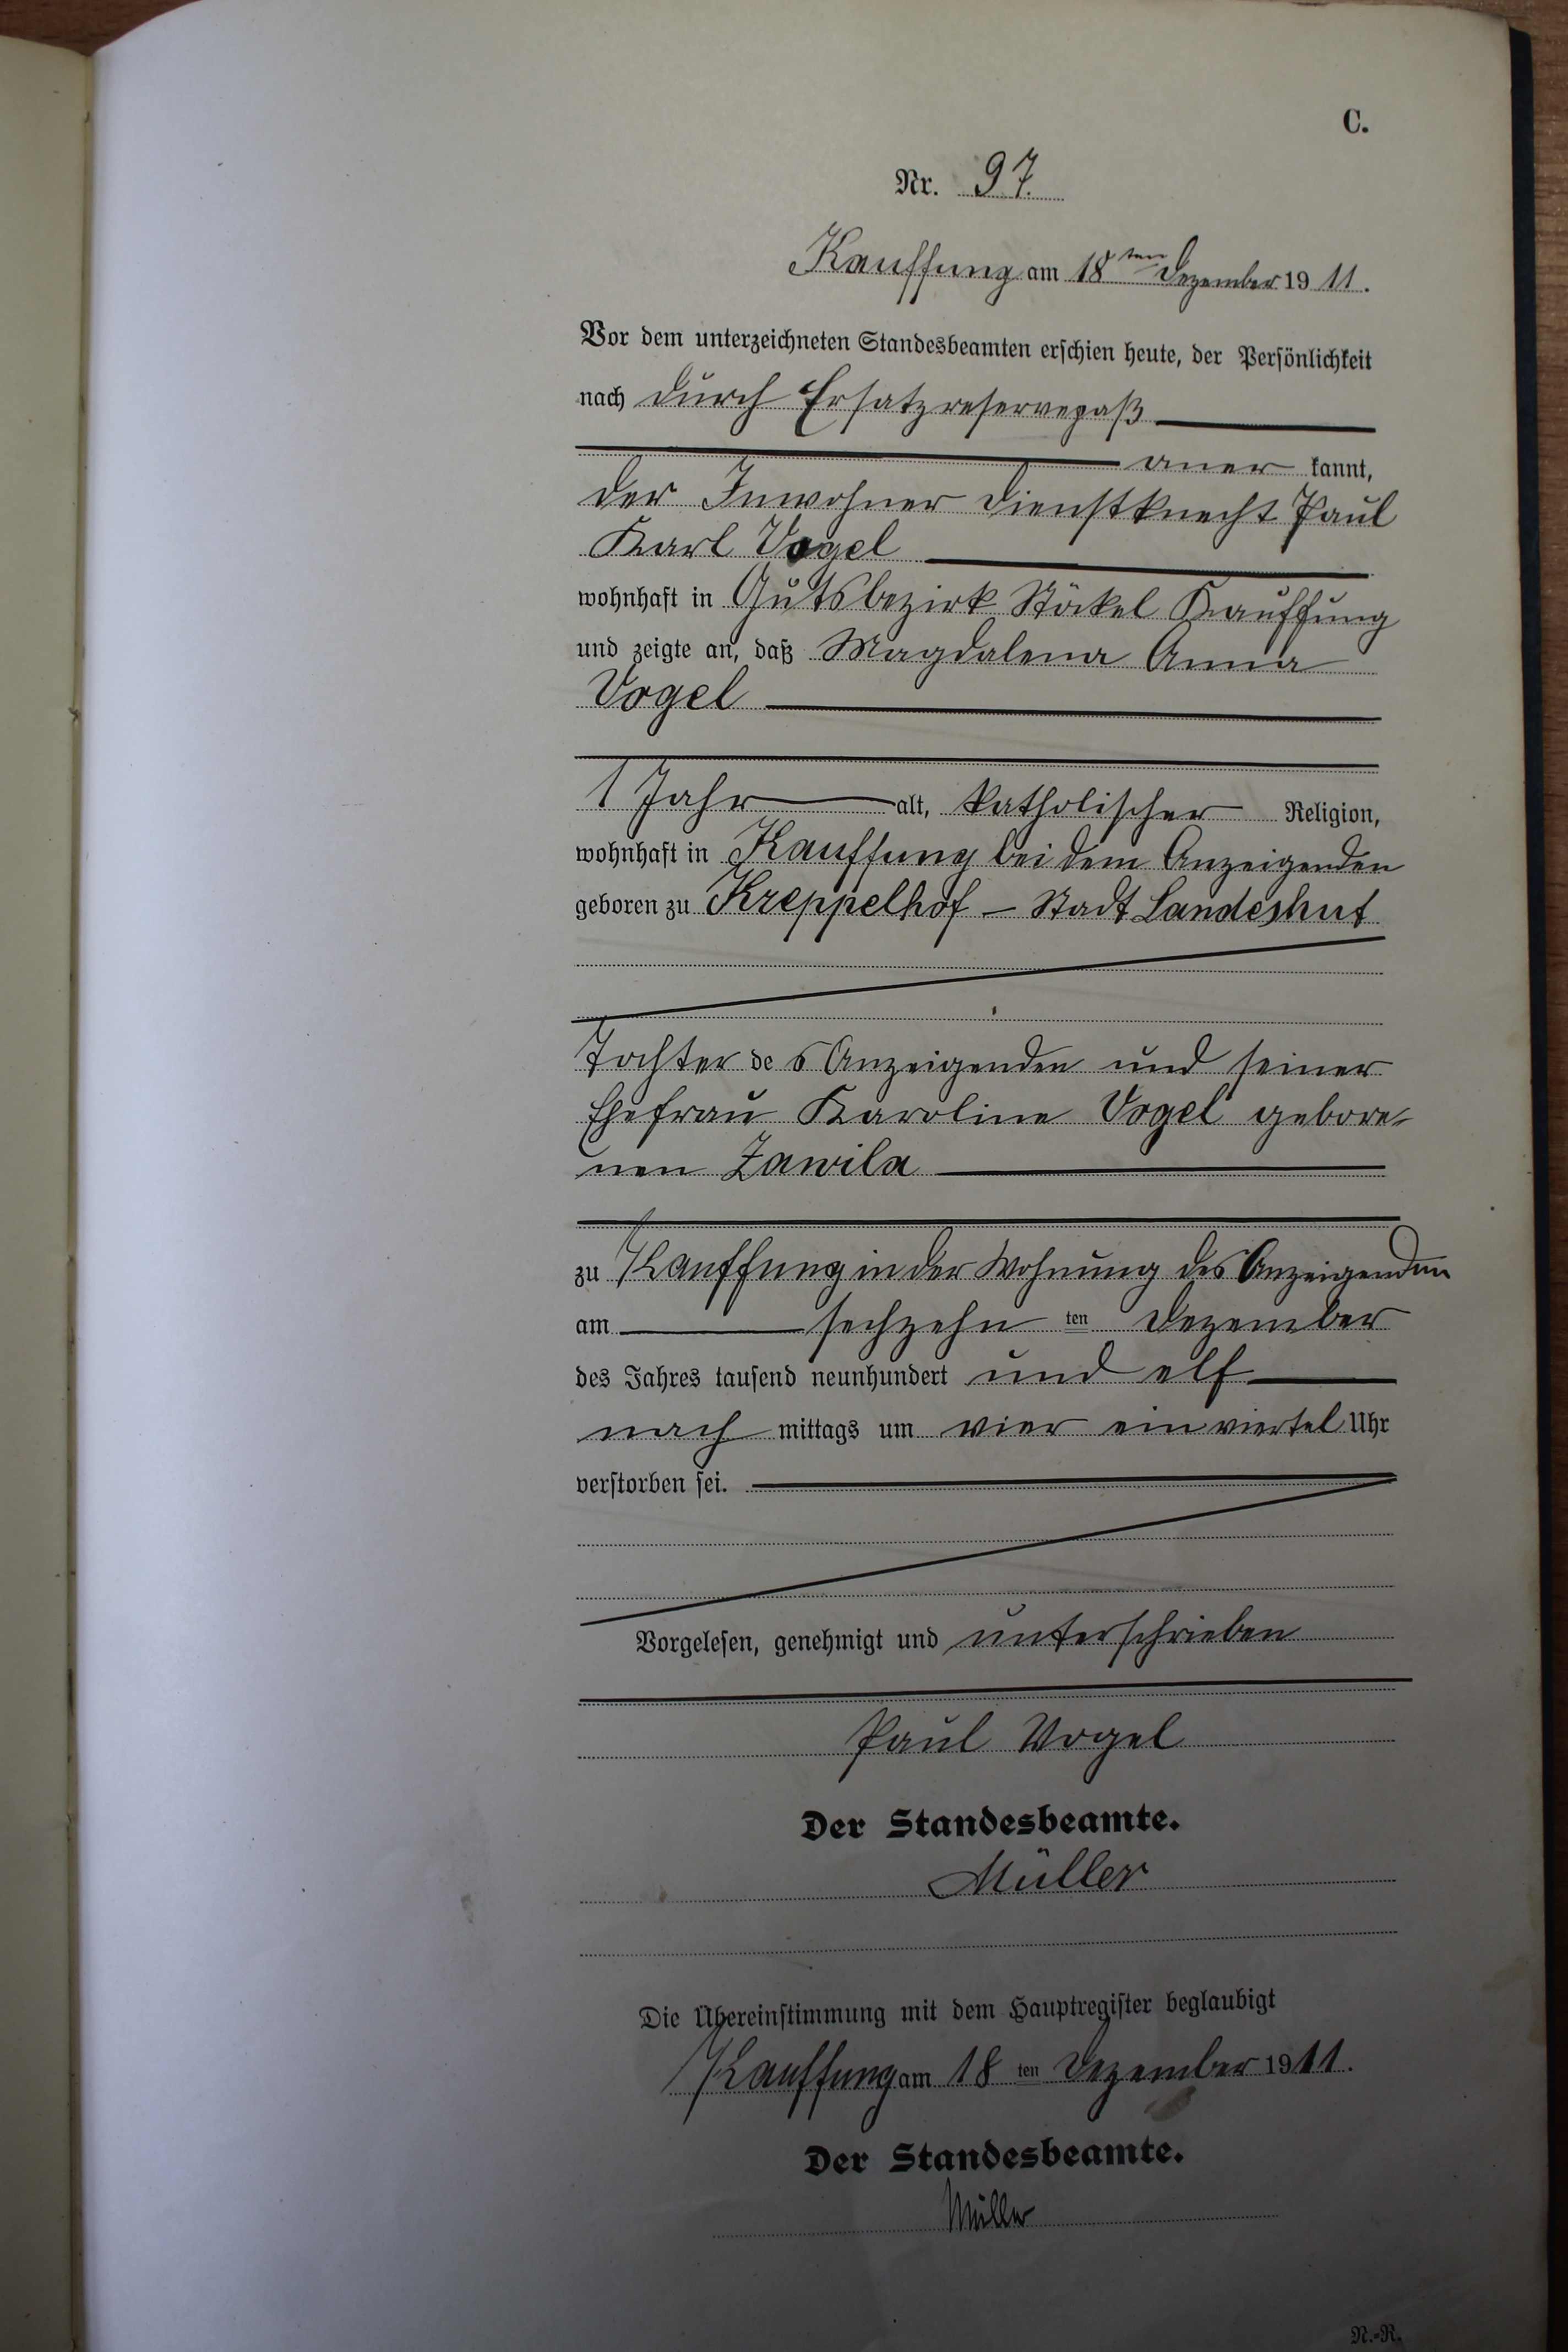 C.
Nr. 97.
Kauffung am 18ten Dezember 1911.
Vor dem unterzeichneten Standesbeamten erschien heute, der Persönlichkeit
nach durch Ersatzreservepaß
anerkannt,
der Inwohner Dienstknecht Paul
Karl Vogel
wohnhaft in Gutsbezirk Stöckel Kauffung
und zeigte an, daß Magdalena Anna
Vogel
1 Jahr alt, katholischer Religion,
wohnhaft in Kauffung bei dem Anzeigenden
geboren zu Kreppelhof – Stadt Landeshut
Tochter des Anzeigenden und seiner
Ehefrau Karoline Vogel gebore-
nen Zawila
zu Kauffung in der Wohnung des Anzeigenden
am sechzehnten Dezember
des Jahres tausend neunhundert und elf
nachmittags um vier ein viertel Uhr
verstorben sei.
Vorgelesen, genehmigt und unterschrieben
Paul Vogel
Der Standesbeamte.
Müller
Die Übereinstimmung mit dem Hauptregister beglaubigt
Kauffung am 18ten Dezember 1911.
Der Standesbeamte.
Müller
N.-R.